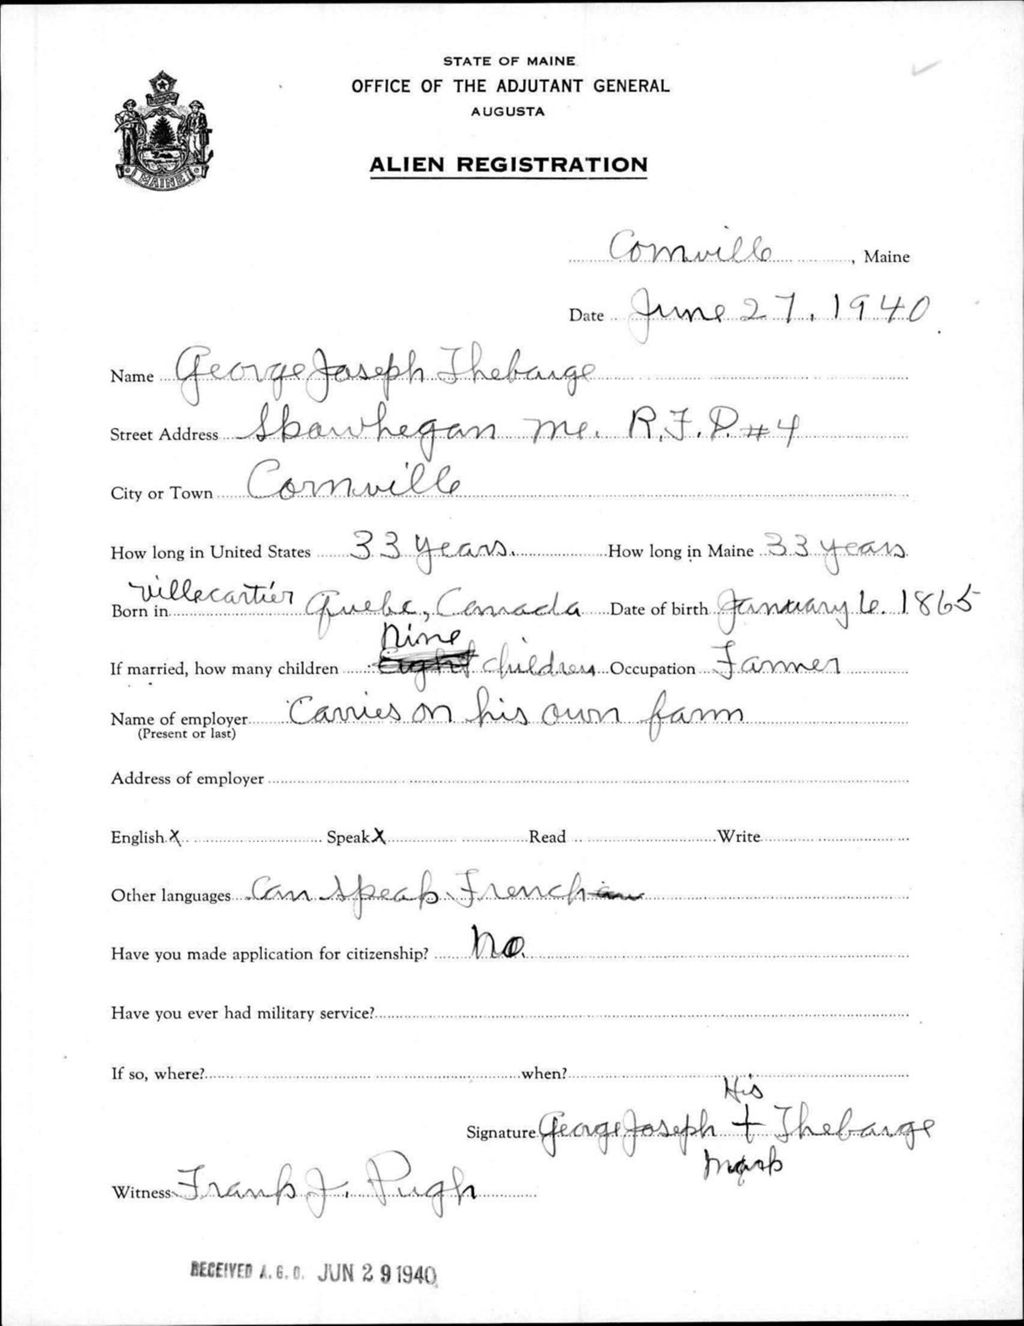 STATE OF MAINE
OFFICE OF THE ADJUTANT GENERAL
AUGUSTA
ALIEN REGISTRATION
MAINE
Cornville, Maine
Date June 27, 1940
Name George Joseph Thebarge
Street Address Skowhegan Me. R.F.D. #4
City or Town Cornville
How long in United States 33 years. How long in Maine 33 years
Villecartier
Born in Quebe, Canada Date of birth January 6. 1865
Nine
If married, how many children Eight children Occupation Farmer
Name of employer Carries on his own farm
(Present or last)
Address of employer
English X Speak X Read Write
Other languages Can speak French
Have you made application for citizenship? No.
Have you ever had military service?
If so, where? when?
His
Signature George Joseph + Thebarge
mark
Witness Frank J. Pugh
RECEIVED A. G. O. JUN 29 1940